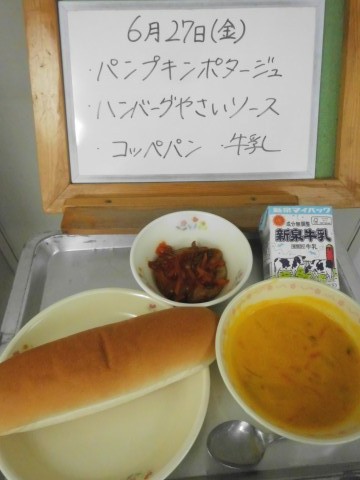 6月27日(金)
・パンプキンポタージュ
・ハンバーグやさいソース
・コッペパン ・牛乳
新泉牛乳
牛乳